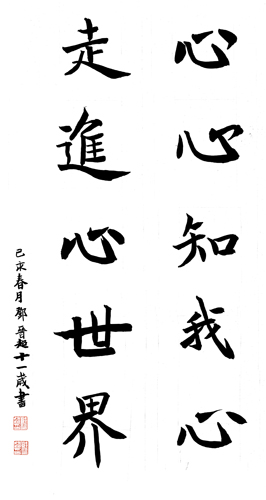 心心知我心
走進心世界
己亥春月鄧晉超十一歲書